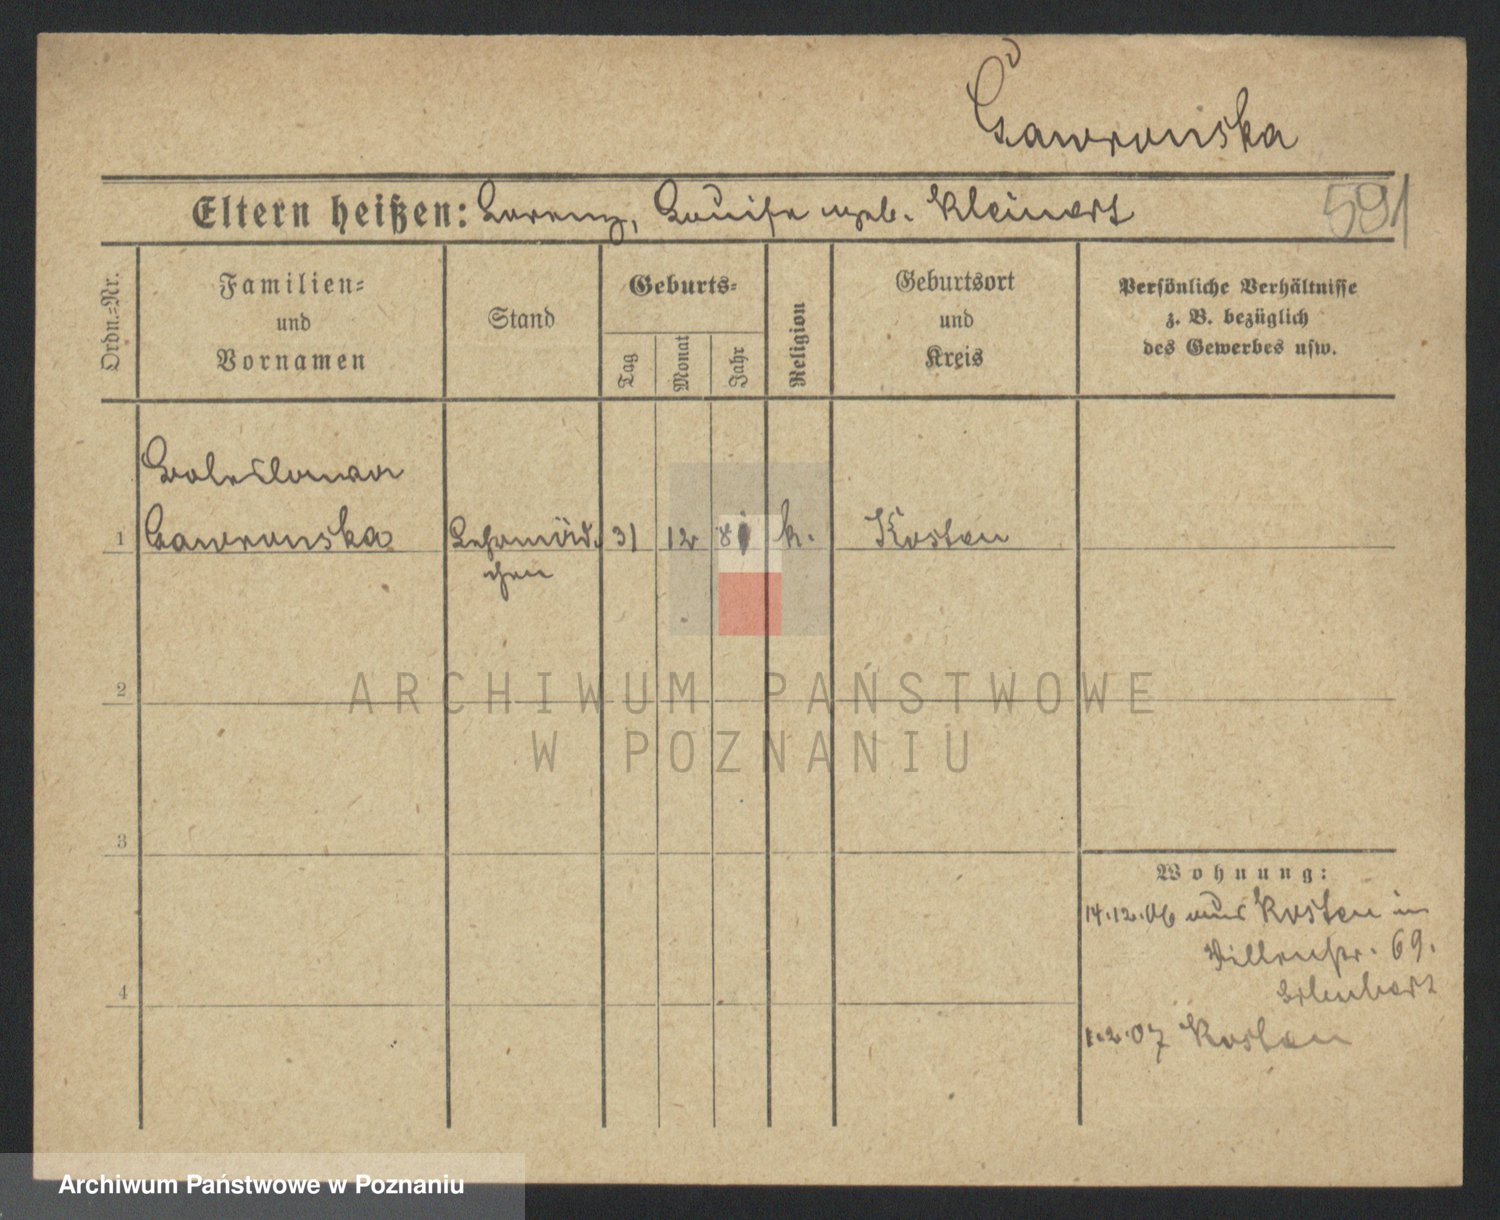 Gawronska
Eltern heißen: Lorenz, Louise geb. Kleinert
591
Ordn.=Nr.
Familien=
und
Vornamen
Stand
Geburts=
Tag
Monat
Jahr
Religion
Geburtsort
und
Kreis
Persönliche Verhältnisse
z. B. bezüglich
des Gewerbes usw.
Boleslawa
1 Gawronska Lehrmäd- 31 12 k. Kosten
chen
2
ARCHIWUM PAŃSTWOWE
W POZNANIU
3
Wohnung:
14.12.06 aus Kosten in
69.
4
1.2.07 Kosten
Archiwum Państwowe w Poznaniu